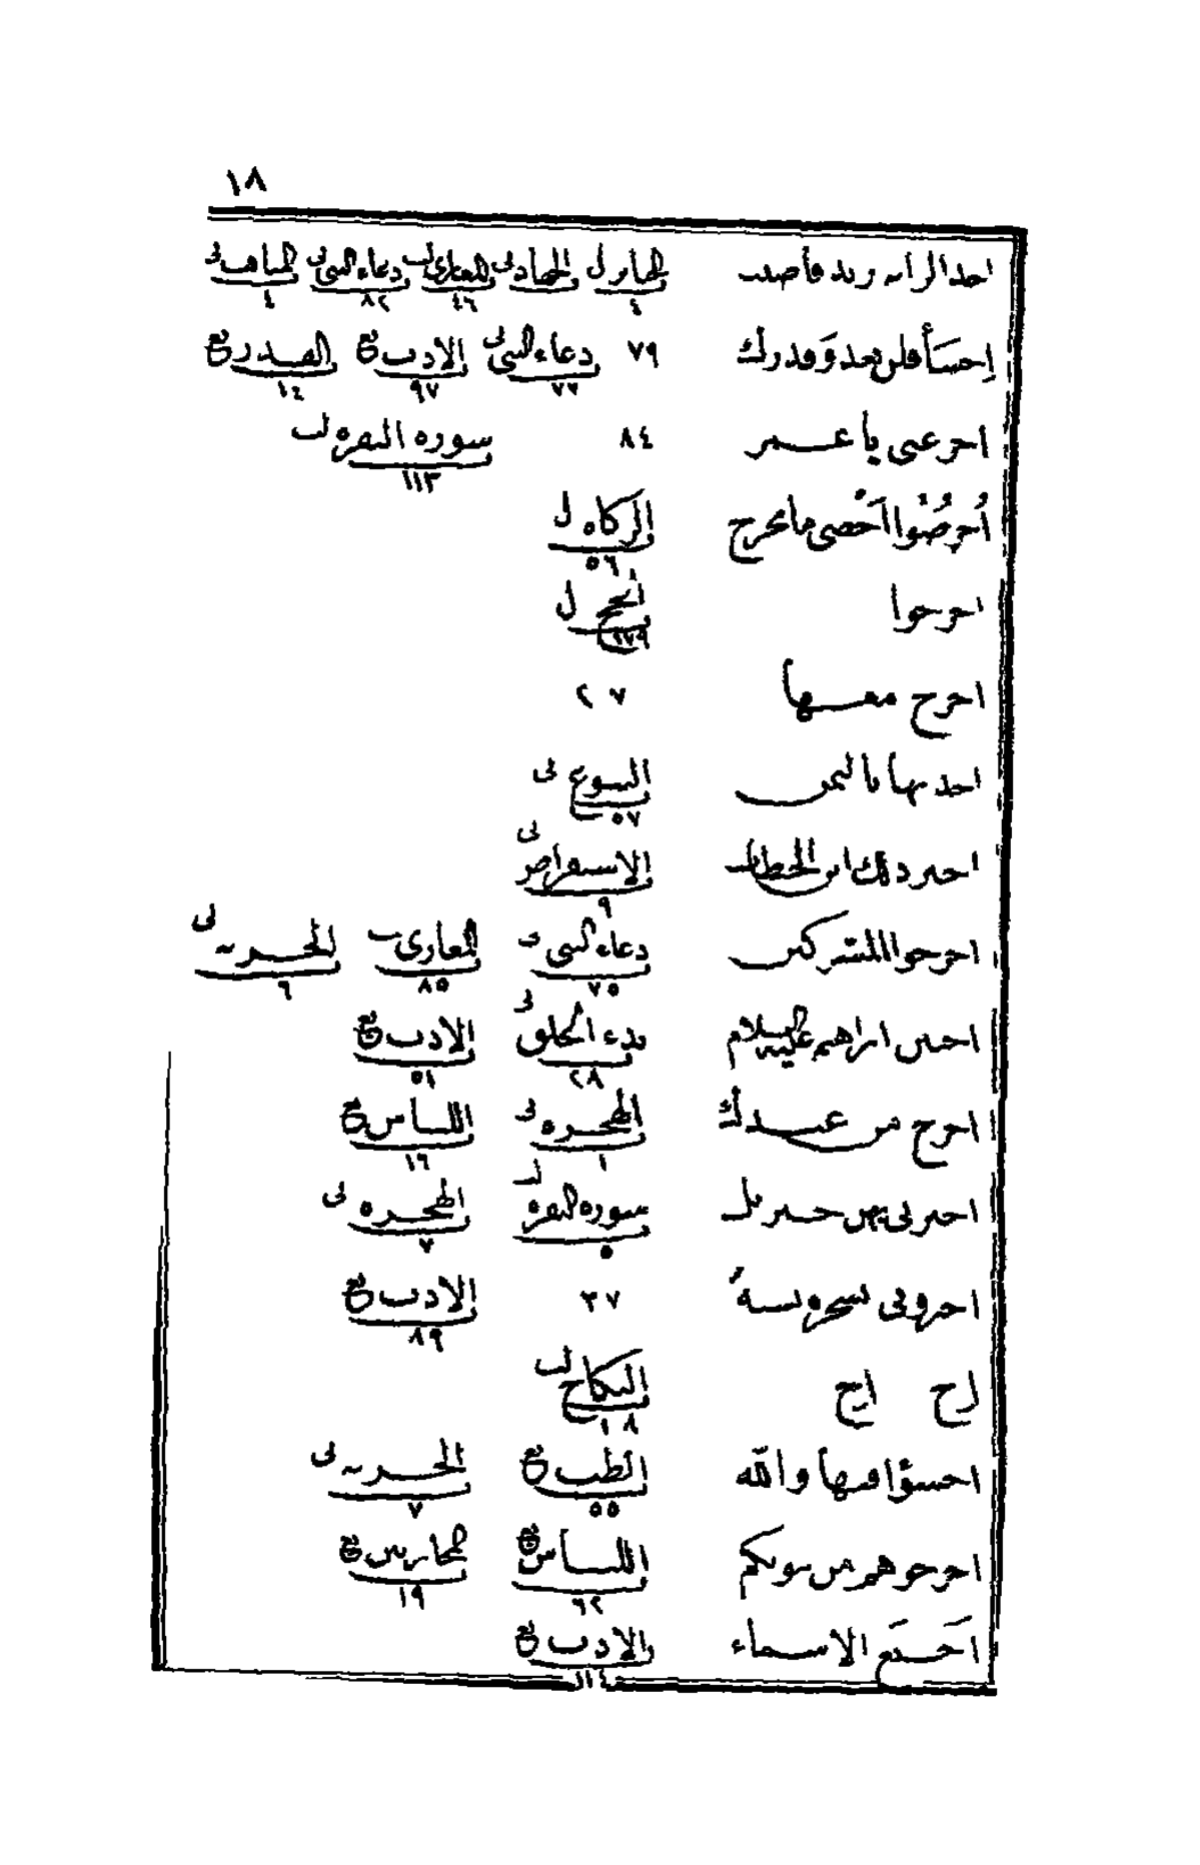 ١٨
اخذ الراية زيد فأصيب الجنائز ل ٤ الجهاد ل المغازى ٤٦ دعاء النبى ل ٨٢ المناقب ل ٤
إخسَأ فلن تعدوَ قدرك ٧٩ دعاء النبى ل ٧٧ الادب ع ٩٧ القدر ع ١٤
اخر عنى يا عمر ٨٤ سورة البقرة ل ١١٣
أُخرصُوا أحصى ما يخرج الزكاة ل ٥٦
اخرجوا الحج ل
اخرج معها ٢٧
اخذتها بالثمن البيوع ل ٥٧
اخبر ذلك ابن الخطاب الاستقراض ل ٩
اخرجوا المشركين دعاء النبى ٧٥ المغازى ٨٥ الجزية ل ٦
اختتن ابراهيم عليه السلام بدء الخلق ل ٢٨ الادب ع ٥١
اخرج من عندك الهجرة ل ١ اللباس ع ١٦
اخبرنى بهن جبريل سورة البقرة ٥ الهجرة ل ٧
اخبرونى بشجرة ٣٧ الادب ع ٨٩
اخ اخ النكاح ١٠٨
اخسؤا فيها والله الطب ع ٥٥ الجزية ل ٧
اخرجوهم من بيوتكم اللباس ع ٦٢ المحاربين ع ١٩
أخنَع الاسماء الادب ع ١١٤